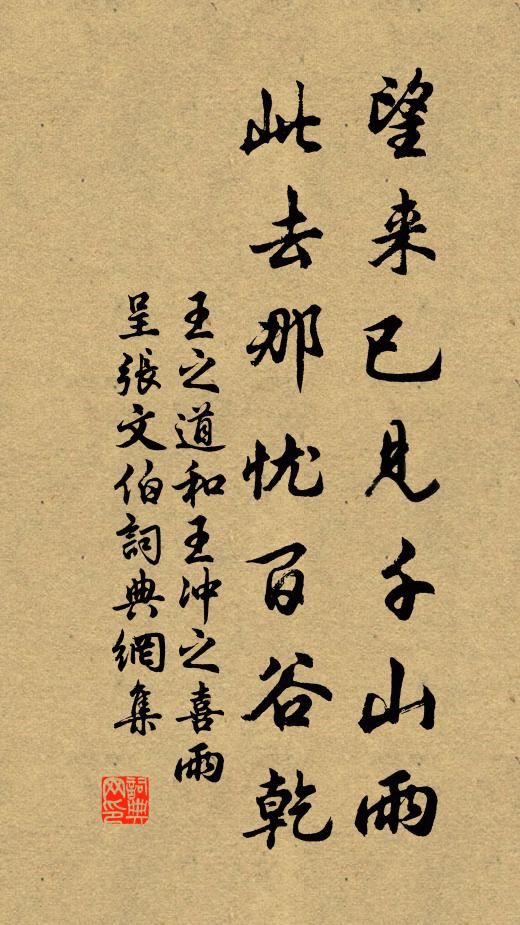 望来已見千山雨
此去那忧百谷乾
王之道和王冲之喜雨
呈張文伯詞典網集
詞典
网印